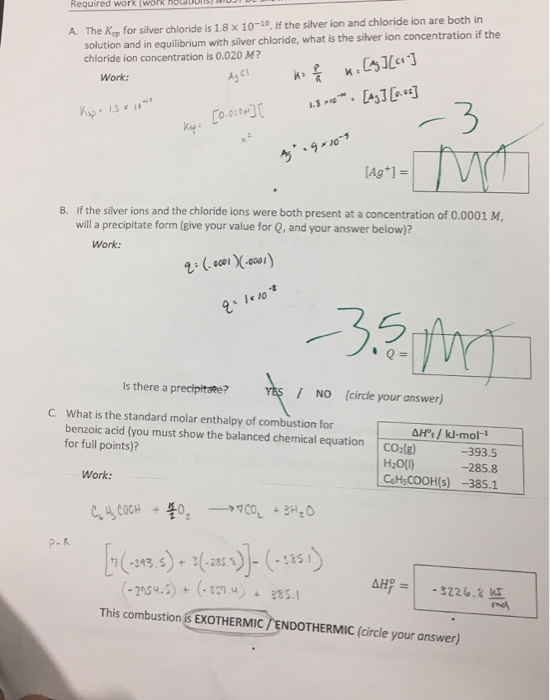 Required work (work
A. The Ksp for silver chloride is 1.8 × 10⁻¹⁰. If the silver ion and chloride ion are both in
solution and in equilibrium with silver chloride, what is the silver ion concentration if the
chloride ion concentration is 0.020 M?
Work:
AgCl
K = P/R
K = [Ag][Cl⁻]
Ksp =
Ksp = [0.020M][
x²
[Ag][0.02]
Ag⁺ = 9 × 10⁻⁹
-3
[Ag⁺] =
B. If the silver ions and the chloride ions were both present at a concentration of 0.0001 M,
will a precipitate form (give your value for Q, and your answer below)?
Work:
q = (.0001)(.0001)
q = 1 × 10⁻⁸
-3.5
Q =
Is there a precipitate? YES / NO (circle your answer)
C. What is the standard molar enthalpy of combustion for
benzoic acid (you must show the balanced chemical equation
for full points)?
ΔH°f / kJ-mol⁻¹
CO₂(g) −393.5
H₂O(l) −285.8
C₆H₅COOH(s) −385.1
Work:
O₂ → 7CO₂ + 3H₂O
P-R
[7(-393.5) + 3(-285.8)] - (-385.1)
(-2754.5) + (-857.4) + 385.1
ΔH°f = -3226.8 kJ/mol
This combustion is EXOTHERMIC / ENDOTHERMIC (circle your answer)